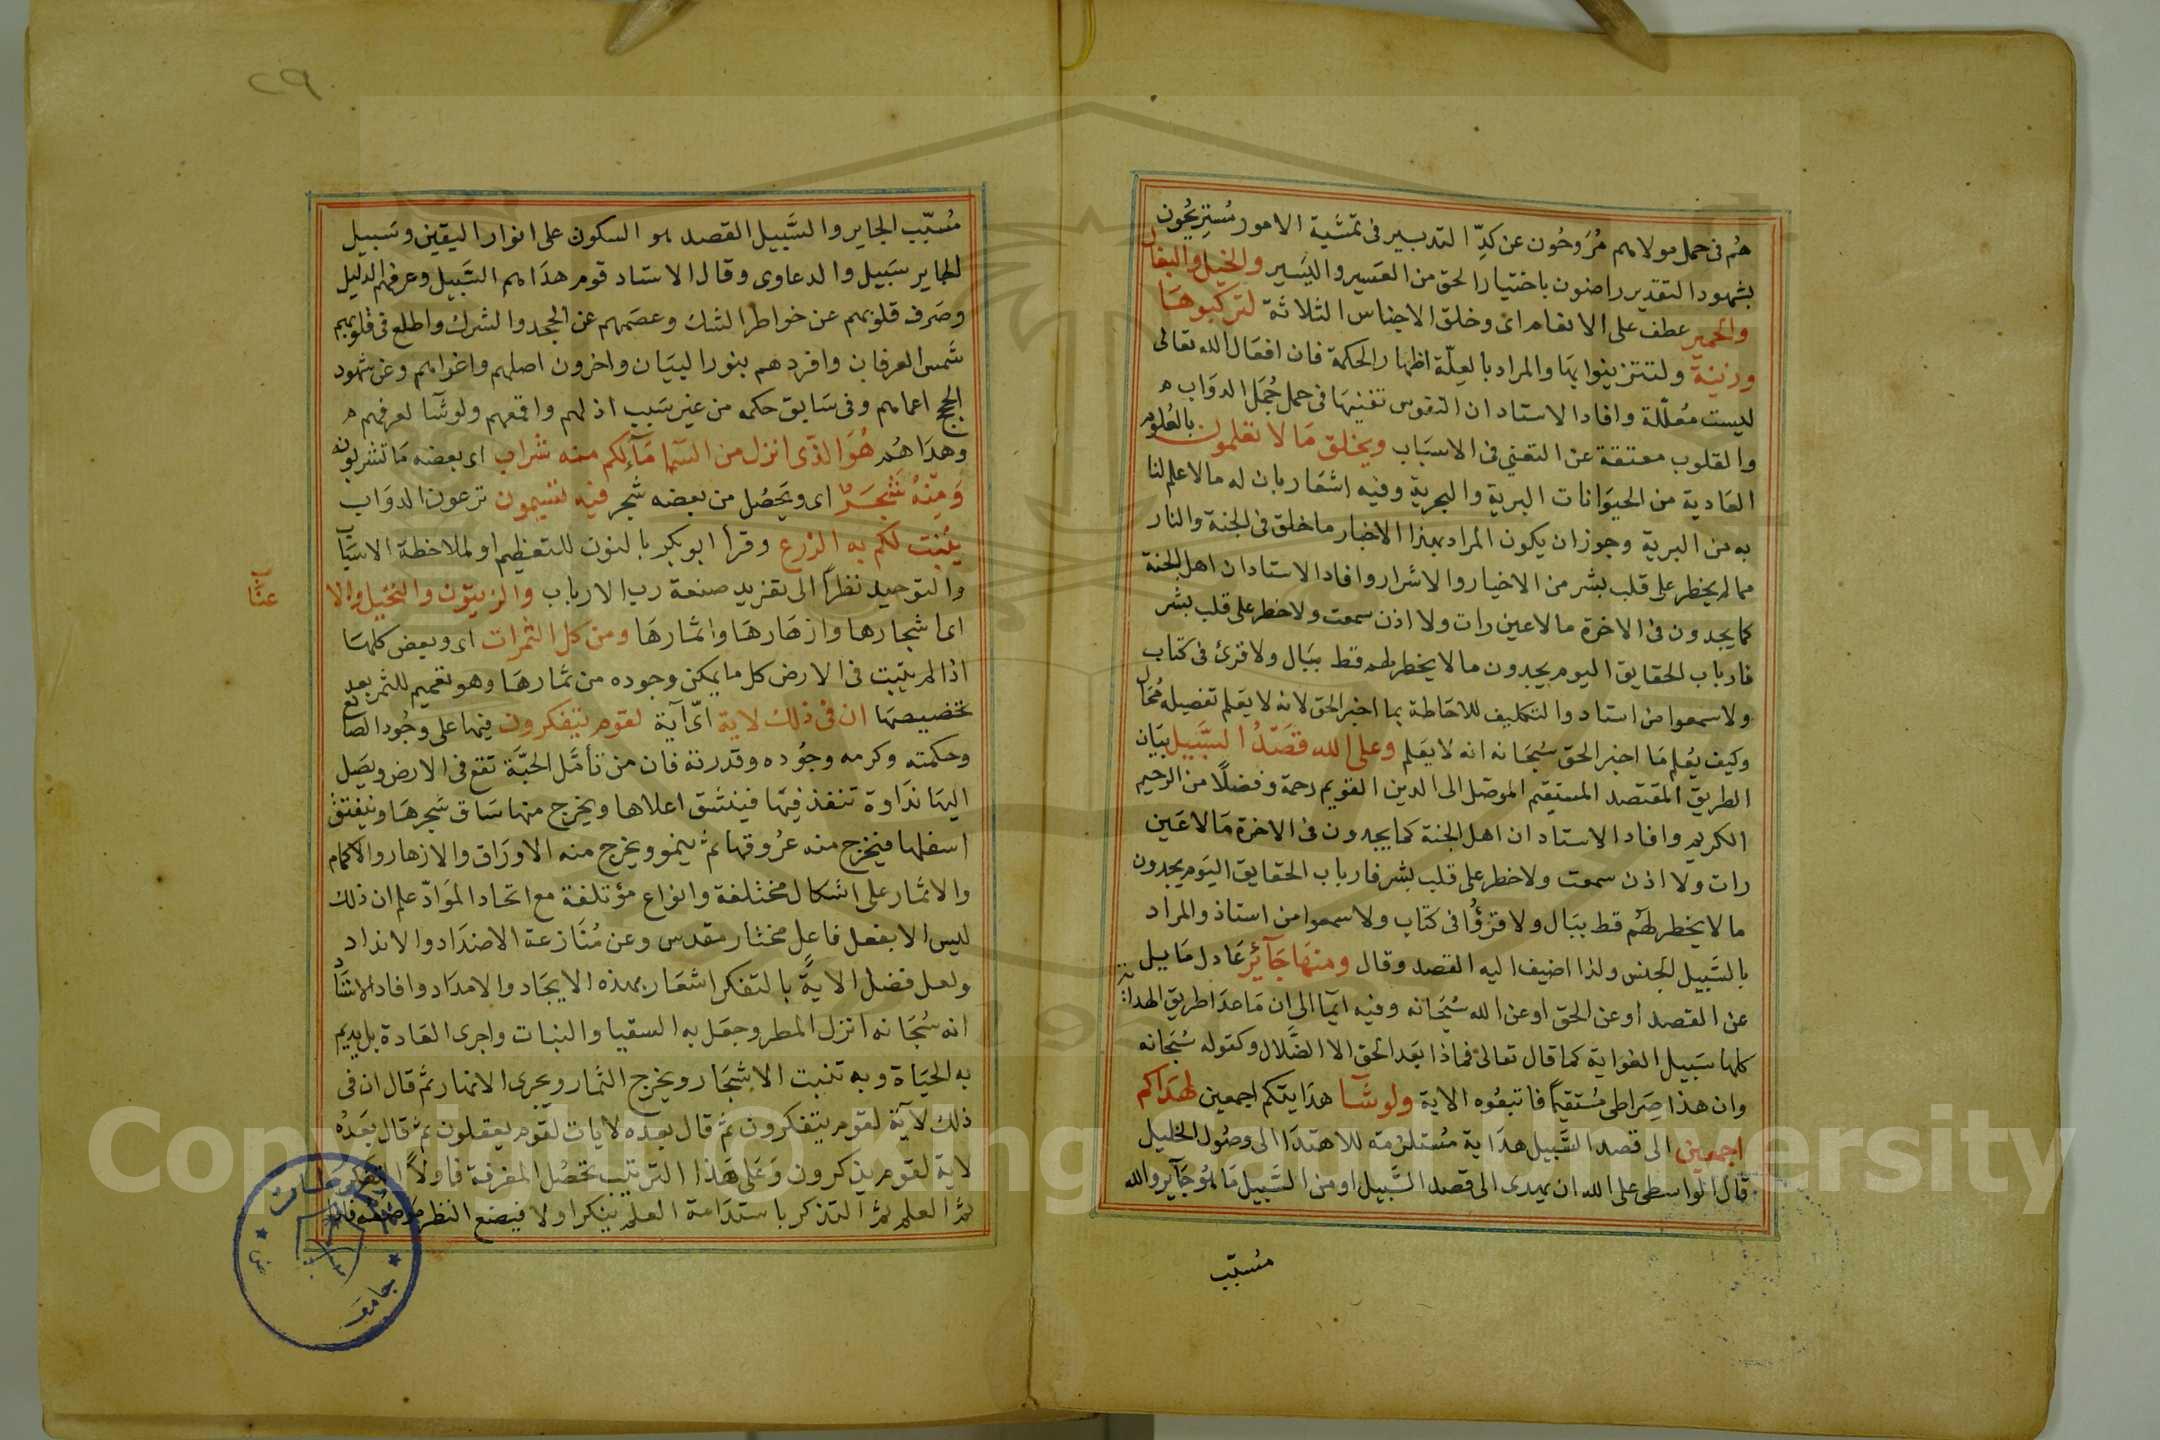 هُم فى حمل مولاهم مُرَوحُون عن كدِّ التدبير فى تمشَية الامور مُستريحُون
بشهود التقدير راضون باختيار الحق من العَسير واليَسير والخيل والبغال
والحمير عطف على الانعام اى وخلق الاجناس الثلاثة لتركبوهَا
وزينة ولتتزينوا بهَا والمراد بالعِلّة اظهار الحكمة فان افعَال الله تعالى
ليست مُعلّلة وافاد الاستاد ان النفوس تفنيهَا فى حمل جُمَل الدوَاب ه
والقلوب معتقة عن التعنى فى الاسبَاب ويخلق مَا لا تعلمون بالعُلوم
العَادية من الحيوَانات البرية والبحرية وفيه اشعَار بان له ما لا علم لنا
به من البرية وجوز ان يكون المراد بهذا الاخبار ما خلق فى الجنة والنار
مما لم يخطر على قلب بشر من الاخيار والاشرار وافاد الاستاد ان اهل الجنة
كما يجدون فى الاخرة ما لا عين رات ولا اذن سمعت ولا خطر على قلب بشر
فارباب الحقايق اليوم يجدون ما لا يخطر لهم قط ببَال ولا قرئ فى كتاب
ولا سمعوا من استاد والتكليف للاحَاطة بما اخبر الحق لانه لا يَعلم تفصيله مُحَال
وكيف يُعلم مَا اخبر الحق سُبحَانه انه لا يَعلم وعلى الله قصَدُ السَّبيل بيَان
الطريق المقتصد المستقيم الموصّل الى الدين القويم رحمة وفضلًا من الرحيم
الكريم وافاد الاستاد ان اهل الجنة كما يجدون فى الاخرة مَا لا عَين
رات ولا اذن سمعت ولا خطر على قلب بشر فارباب الحقايق اليَوم يجدون
ما لا يخطر لهم قط ببَال ولا قرؤُا فى كتاب ولا سمعوا من استاذ والمراد
بالسَّبيل الجنس ولذا اضيف اليه القصد وقال ومنهَا جَآئِر عَادل مَايل
عن القصد او عن الحق او عن الله سُبحَانه وفيه ايمآ الى ان مَا عدَا طريق الهداية
كلها سَبيل الغواية كما قال تعالى فماذا بَعد الحق الا الضَّلال وكقوله سُبحَانه
وان هذا صِرَاطى مُستقيمًا فاتبعُوه الاية ولو شآ هدَايتكم اجمعين لهدَاكم
اجمعين الى قصد السَّبيل هدَاية مُستلزمة للاهتدَا الى وصُول الخليل
قال الواسطى على الله ان يهدى الى قصد السَّبيل او من السَّبيل مَا هُو جَآير والله
مُسبّب
٢٩
مُسبّب الجاير والسَّبيل القصد هو السكون على انوار اليقين وسَبيل
الجاير سَبيل والدعاوى وقال الاستاد قوم هدَاهم السَّبيل وعرفهم الدليل
وصَرف قلوبهم عن خواطر الشك وعصَمهم عن الجحد والشرك واطلع فى قلوبهم
شَمس العرفان وافردهم بنور البيَان واخرون اضلهم واغواهم وعن شهود
الحجج اعماهم وفى سَابق حكمه من غير سَبب اذلهم واقمعهم ولو شآ لعرفهم ه
وهدَاهُم هُوَ الذّى انزل من السّما مَآ لكم منه شراب اى بعضه مَا تشربُونه
وَمِنهُ شَجَرٌ اى ويَحصُل من بعضه شجر فيه تسيمون ترعون الدوَاب
يُنبت لكم به الزرع وقرأ ابو بكر بالنون للتعظيم او لملاحظة الاسبَاب
والتوحيد نظرًا الى تفريد صنعة رب الارباب والزيتون والنخيل والا
عنَاب
اى اشجارها وازهَارهَا واثمارهَا ومن كل الثمرات اى وبعض كلهَا
اذا لم ينبت فى الارض كل ما يمكن وجوده من ثمارهَا وهو تعميم للثمر بعد
تخصيصهَا ان فى ذلك لاية اىّ آية لقوم يتفكرون فيها على وجُود الصَانع
وحكمته وكرمه وجُوده وقدرته فان من تأمَّل الحبَّة تقع فى الارض ويَصل
اليهَا ندَاوة تنفذ فيهَا فينشق اعلاها ويخرج منها سَاق شجرهَا وينفتق
اسفلها فيخرج منه عرُوقها ثم ينمو ويخرج منه الاورَاق والازهار والاكمام
والاثمار على اشكال مختلفة وانواع مؤتلفة مع اتحاد الموَادّ علم ان ذلك
ليس الا بفعل فاعل مختار مقدس وعن مُنَازعة الاضدَاد والانداد
ولعل فضل الاية بالتفكر اشعَار بهذه الايجَاد والامدَاد وافاد الاستَاد
انه سُبحَانه انزل المطر وجعَل به السقيا والنبات واجرى العَادة بل يديم
به الحيَاة وبه تنبت الاشجَار ويخرج الثمار ويجرى الانهار ثم قال ان فى
ذلك لآية لقوم يتفكرون ثم قال بعدَه لايات لقوم يعقلون ثم قال بعَدهُ
لاية لقوم يذكرون وَعَلى هَذا الترتيب تحصُل المعرفة فاولًا التفكر
ثم العلم ثم التذكر باستدَامة العلم يتفكر اولا فيضع النظر
جامعة
Copyright © King Saud University